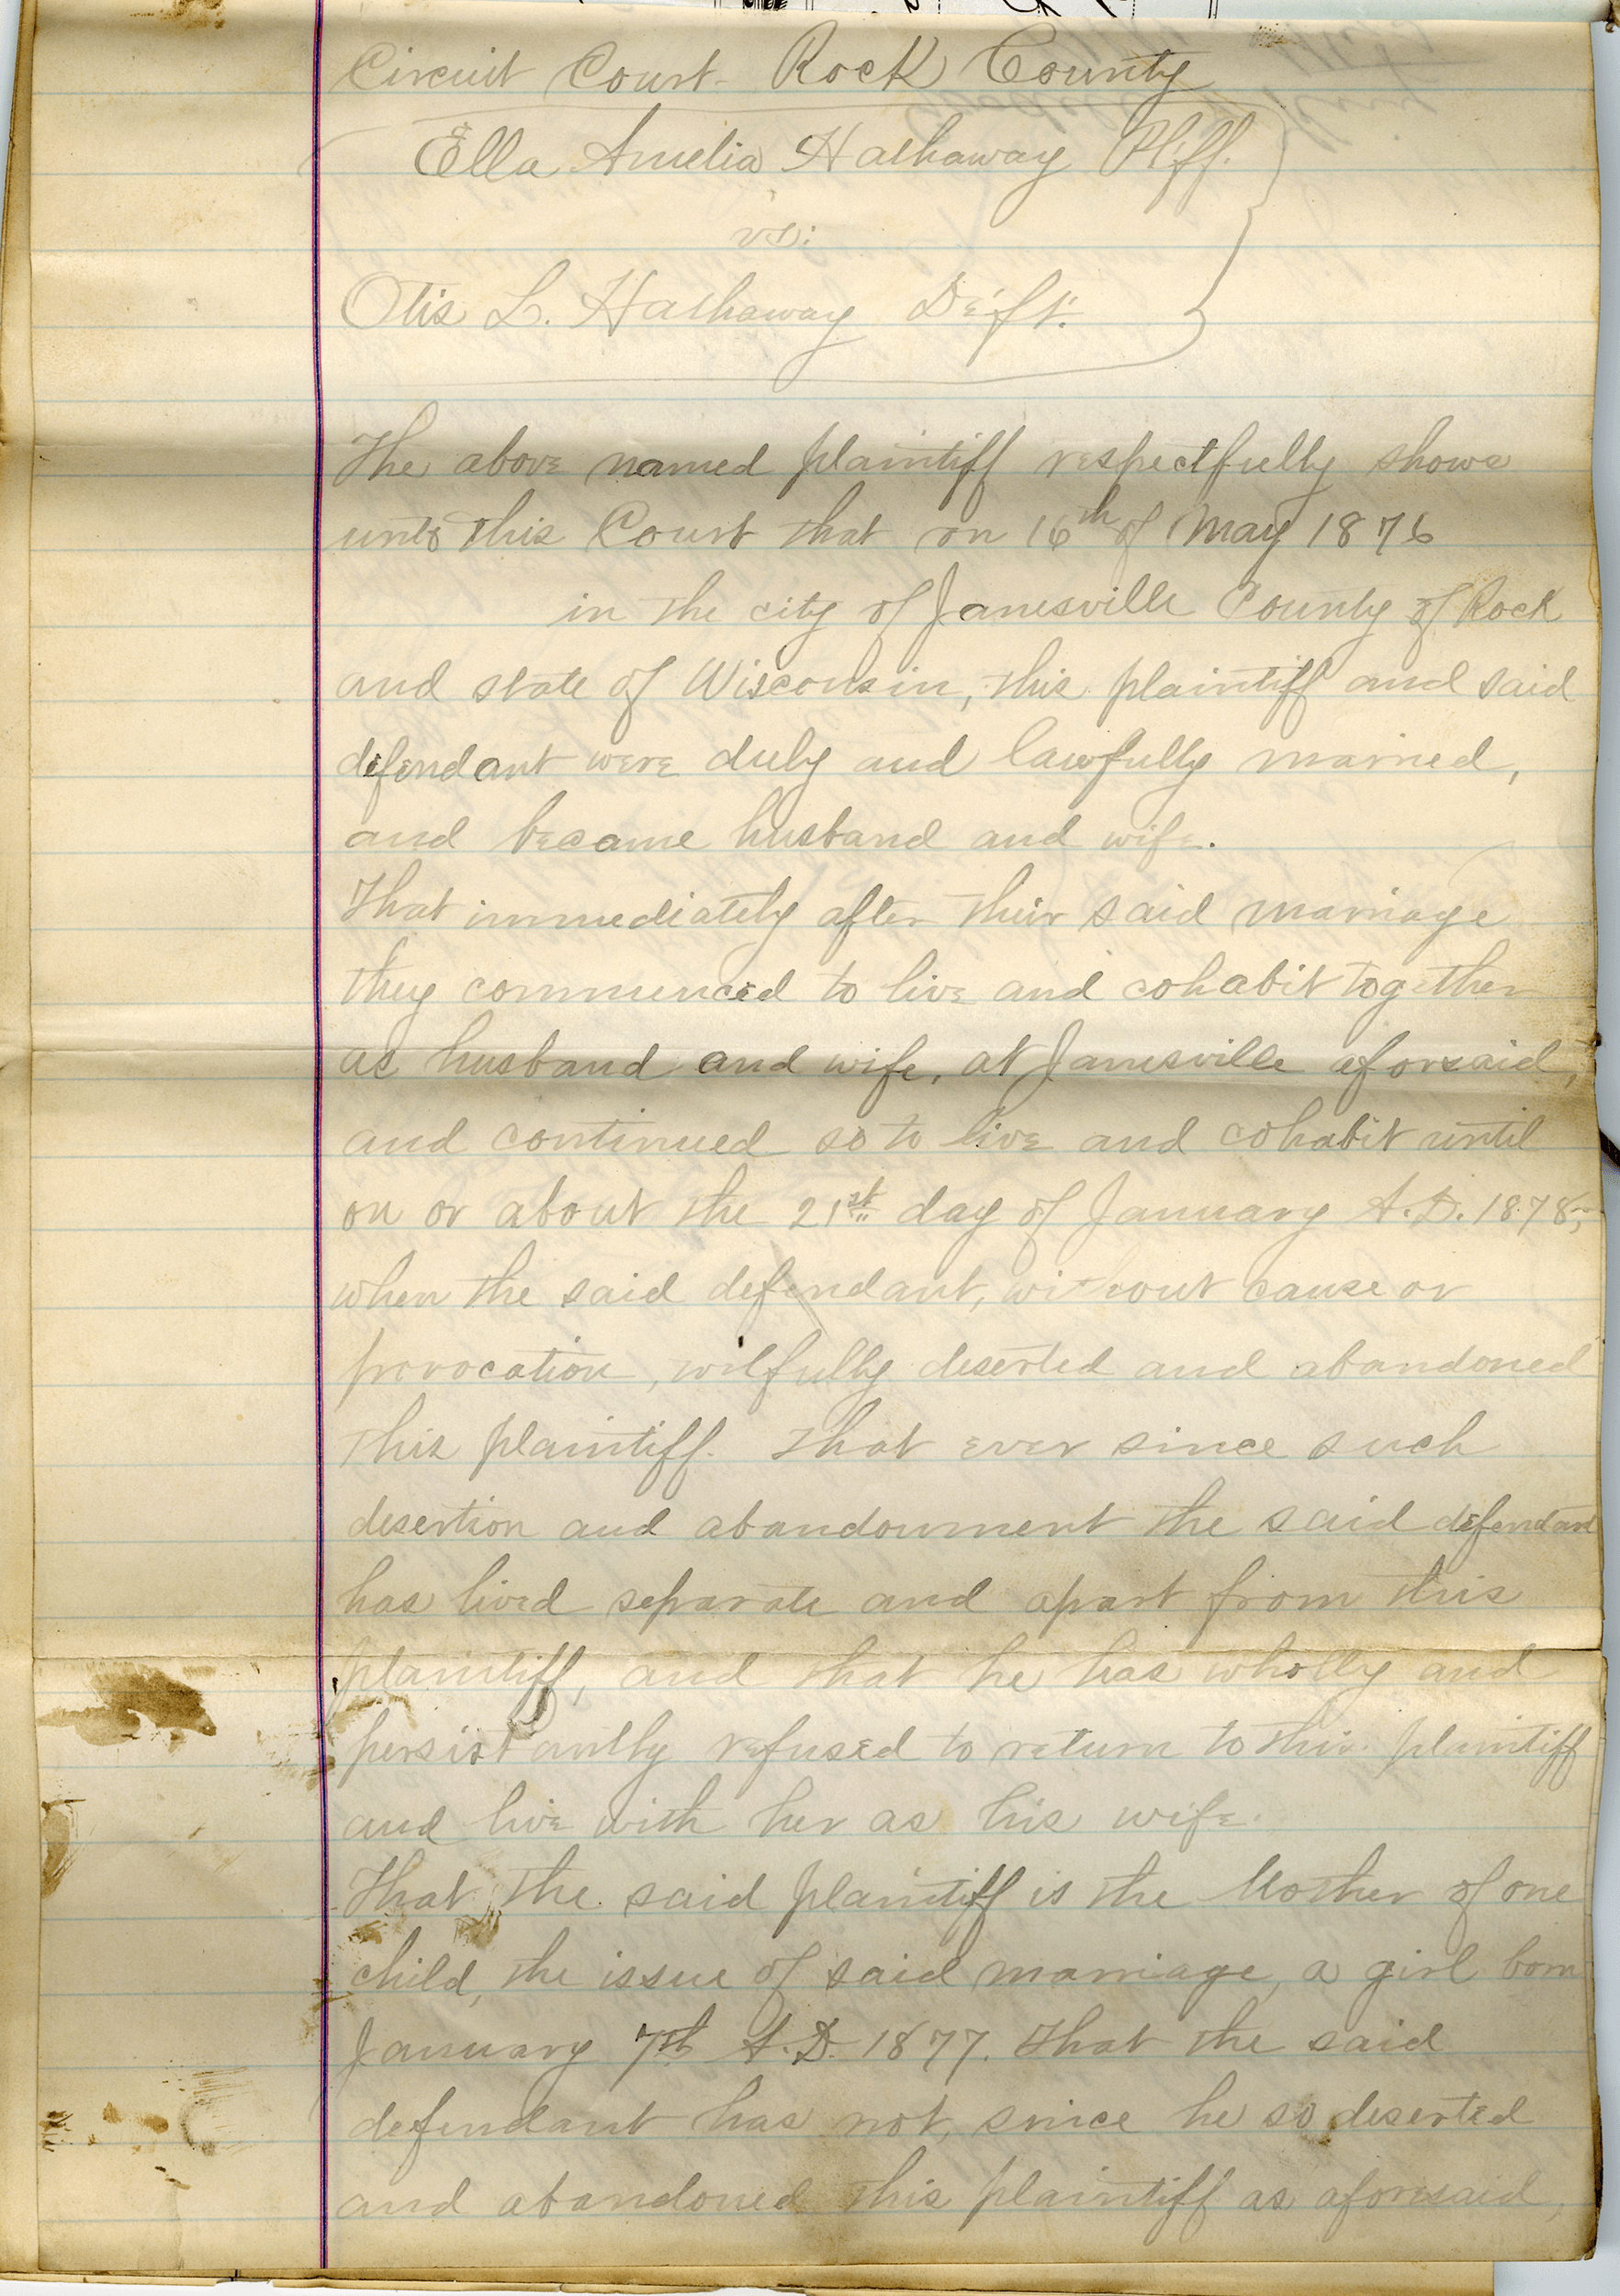 Circuit Court Rock County
Ella Amelia Hathaway Plff.
vs:
Otis L. Hathaway Deft.
The above named plaintiff respectfully shows
unto this Court that on 16th of May 1876
in the city of Janesville County of Rock
and state of Wisconsin, this plaintiff and said
defendant were duly and lawfully married,
and became husband and wife.
That immediately after their said marriage
they commenced to live and cohabit together
as husband and wife, at Janesville aforsaid,
and continued so to live and cohabit until
on or about the 21st day of January A.D. 1878,
when the said defendant, without cause or
provocation, wilfully deserted and abandoned
this plaintiff. That ever since such
desertion and abandonment the said defendant
has lived separate and apart from this
plaintiff, and that he has wholly and
persistantly refused to return to this plaintiff
and live with her as his wife.
That the said plaintiff is the Mother of one
child, the issue of said marriage, a girl born
January 7th A.D. 1877. That the said
defendant has not, since he so deserted
and abandoned this plaintiff as aforesaid,